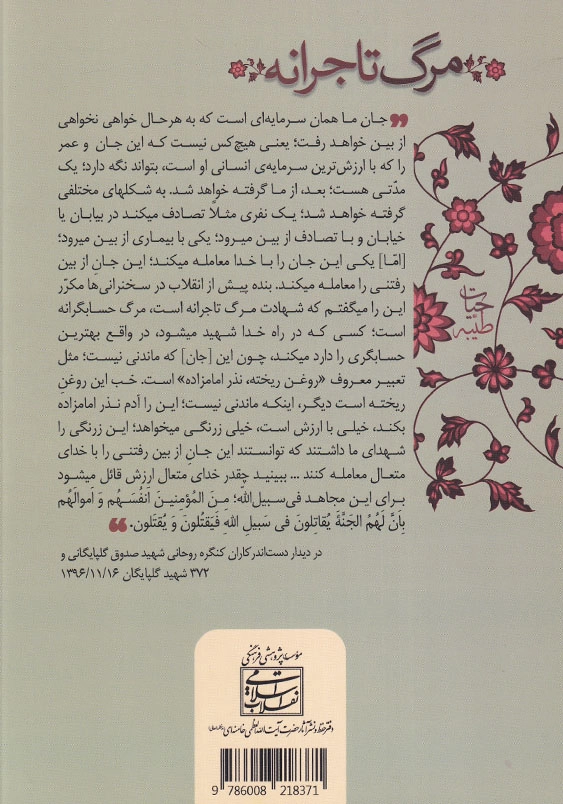 مرگ تاجرانه
جان ما همان سرمایه‌ای است که به هرحال خواهی نخواهی
از بین خواهد رفت؛ یعنی هیچ‌کس نیست که این جان و عمر
را که با ارزش‌ترین سرمایه‌ی انسانی او است، بتواند نگه دارد؛ یک
مدّتی هست؛ بعد، از ما گرفته خواهد شد. به شکلهای مختلفی
گرفته خواهد شد؛ یک نفری مثلاً تصادف میکند در بیابان یا
خیابان و با تصادف از بین میرود؛ یکی با بیماری از بین میرود؛
[امّا] یکی این جان را با خدا معامله میکند؛ این جانِ از بین
رفتنی را معامله میکند. بنده پیش از انقلاب در سخنرانی‌ها مکرّر
این را میگفتم که شهادت مرگ تاجرانه است، مرگ حسابگرانه
است؛ کسی که در راه خدا شهید میشود، در واقع بهترین
حسابگری را دارد میکند، چون این [جان] که ماندنی نیست؛ مثل
تعبیر معروف «روغن ریخته، نذر امامزاده» است. خب این روغنِ
ریخته است دیگر، اینکه ماندنی نیست؛ این را آدم نذر امامزاده
بکند، خیلی با ارزش است، خیلی زرنگی میخواهد؛ این زرنگی را
شهدای ما داشتند که توانستند این جانِ از بین رفتنی را با خدای
متعال معامله کنند ... ببینید چقدر خدای متعال ارزش قائل میشود
برای این مجاهد فی‌سبیل‌الله؛ مِنَ المُؤمِنینَ اَنفُسَهُم وَ اَموالَهُم
بِاَنَّ لَهُمُ الجَنَّةَ یُقاتِلونَ فی سَبیلِ اللهِ فَیَقتُلونَ وَ یُقتَلون.
در دیدار دست‌اندرکاران کنگره روحانی شهید صدوق گلپایگانی و
۳۷۲ شهید گلپایگان ۱۳۹۶/۱۱/۱۶
حیات
طیبه
مؤسسه پژوهشی فرهنگی
انقلاب اسلامی
دفتر حفظ و نشر آثار حضرت آیت‌الله العظمی خامنه‌ای
9 786008 218371